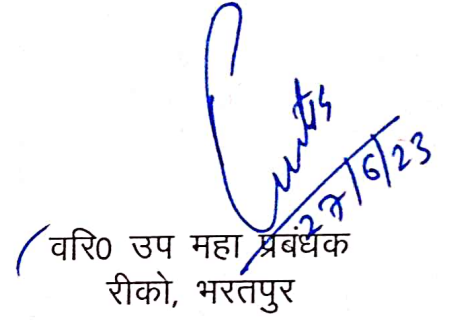 27/6/23
वरि0 उप महा प्रबंधक
रीको, भरतपुर